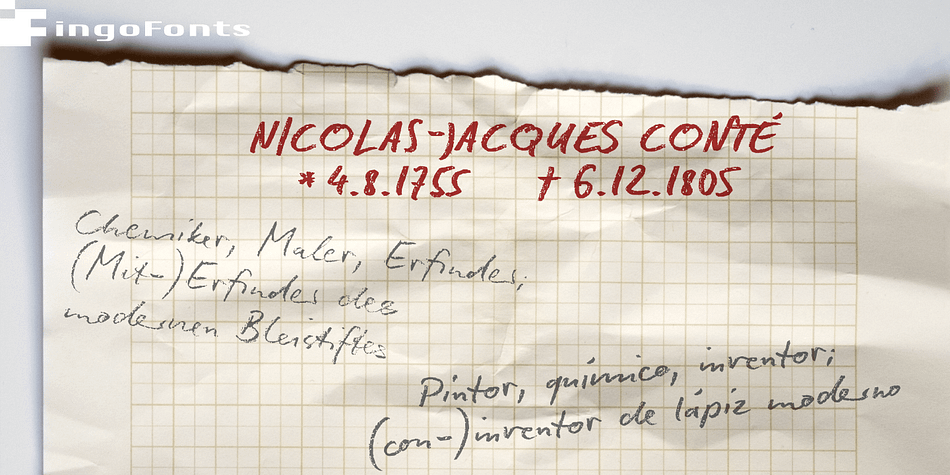 FingoFonts
NICOLAS-JACQUES CONTÉ
* 4.8.1755 † 6.12.1805
Chemiker, Maler, Erfinder;
(Mit-)Erfinder des
modernen Bleistiftes
Pintor, químico, inventor;
(con-)inventor de lápiz moderno